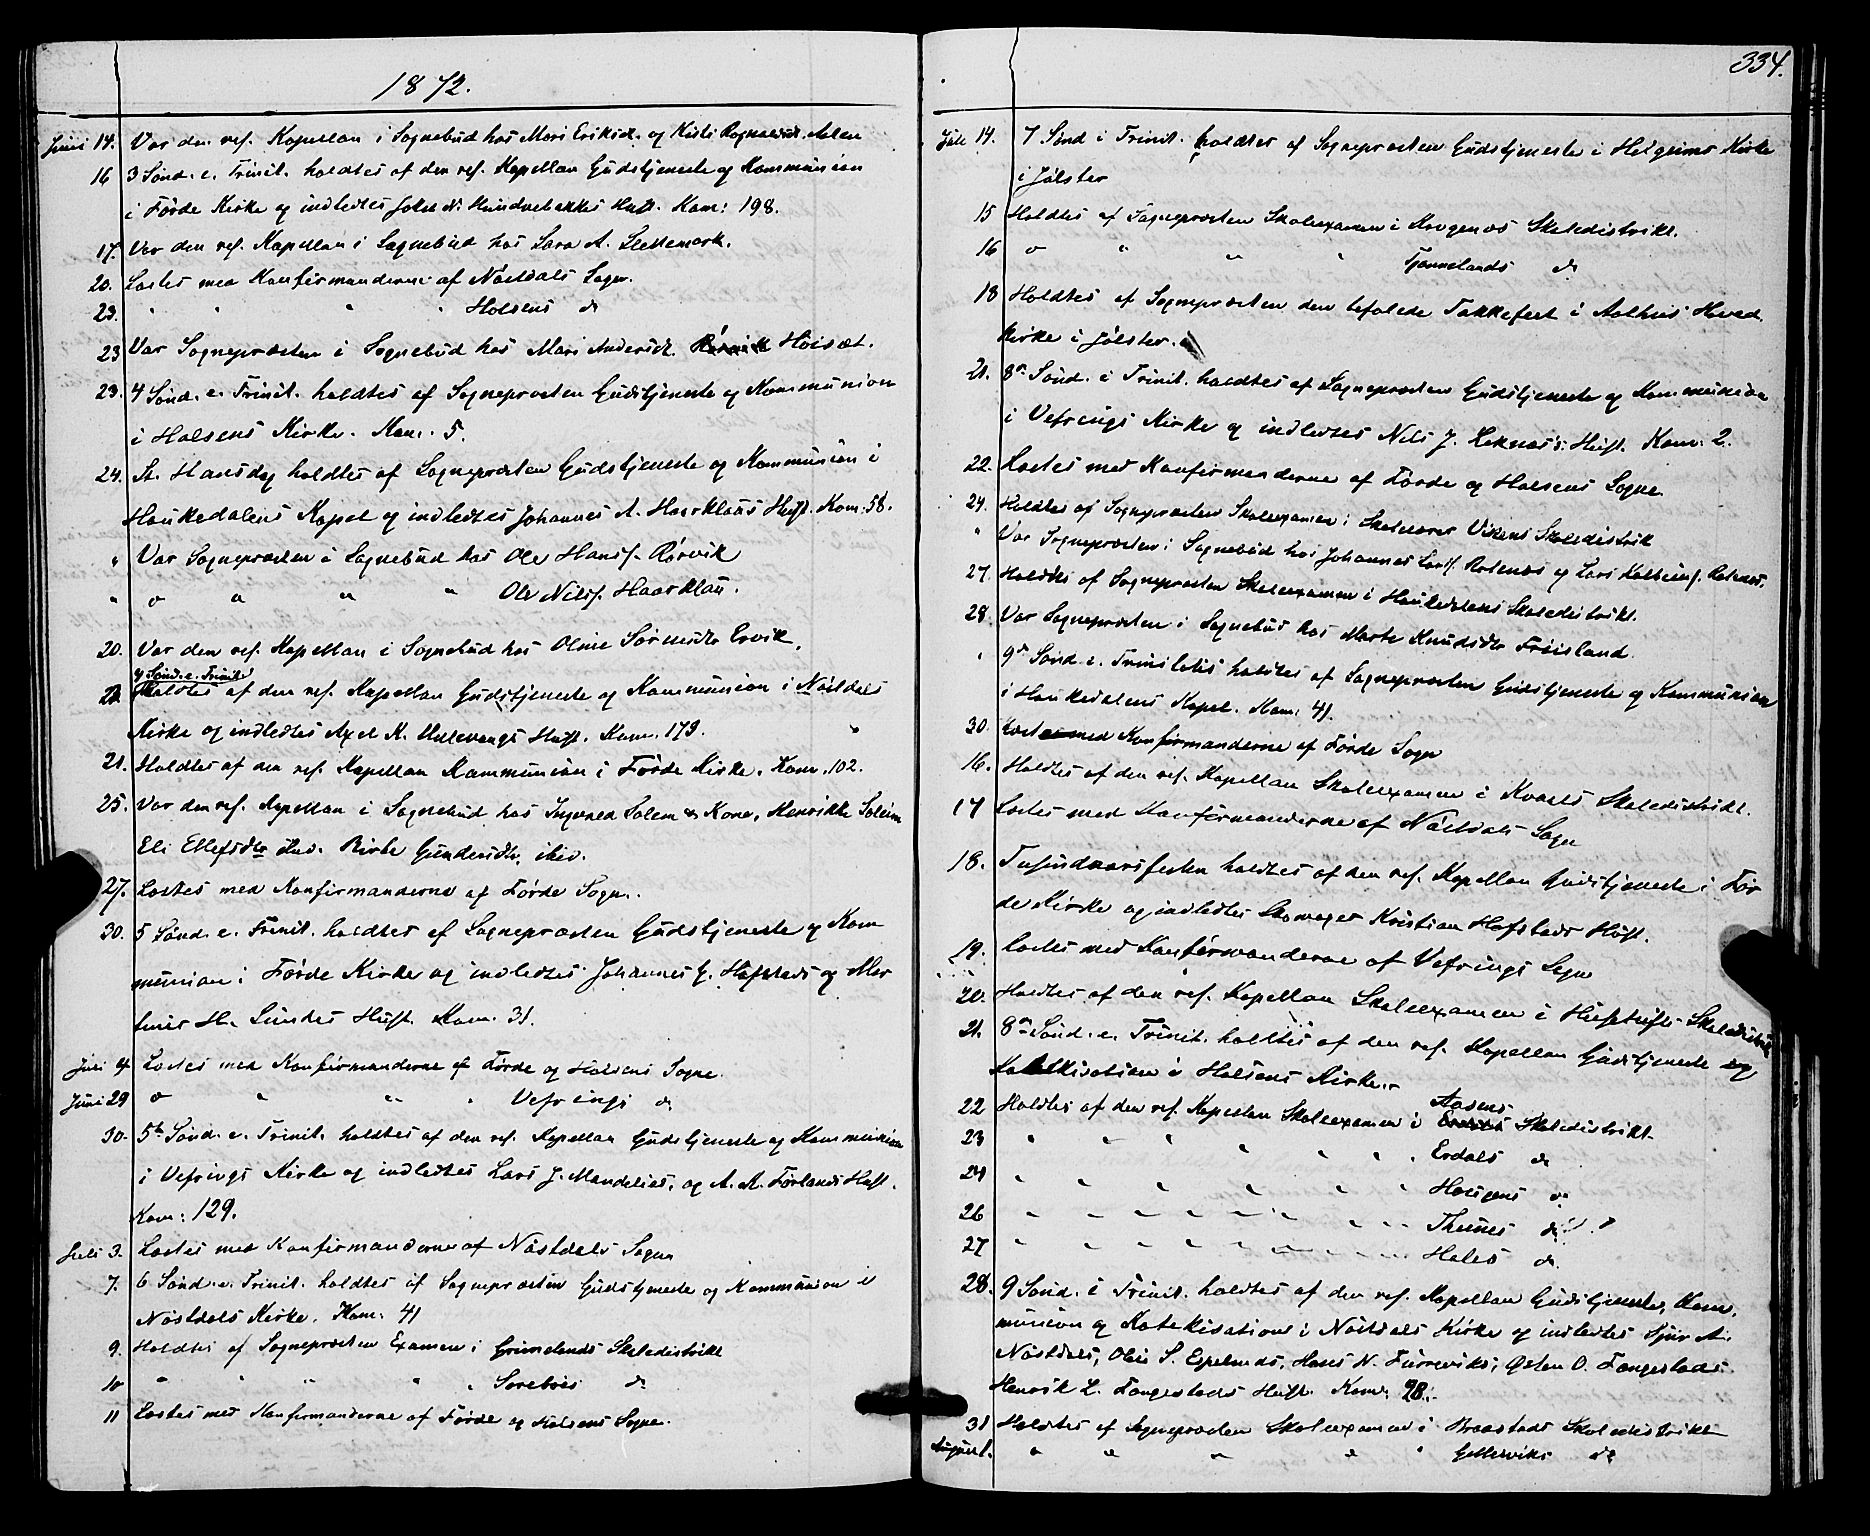 1872.
Juni 14. Var den res. Kapellan i Sognebud hos Mari Eriksd. og Kirsti Rognaldsd.
16 3 Sønd. e. Trinit. holdtes af den res. Kapellan Gudstjeneste og Kommunion
i Førde Kirke og indledtes Johs. N. Hundvebakkes Hust. Kom: 198.
17. Var den res. Kapellan i Sognebud hos Sara A. Slettemark.
20. Læstes med Konfirmanderne af Nøstdals Sogn.
23. " " " " Holsens do
23 Var Sognepræsten i Sognebud hos Mari Andersd. Høisæt.
23. 4 Sønd. e. Trinit. holdtes af Sognepræsten Gudstjeneste og Kommunion
i Holsens Kirke. Kom. 5.
24. St. Hansdag holdtes af Sognepræsten Gudstjeneste og Kommunion i
Haukedalens Kapel og indledtes Johannes A. Haarklaus Hust. Kom: 58.
" Var Sognepræsten i Sognebud hos Ole Hanss. Rørvik
" o " " " Ole Nilss. Haarklau.
20. Var den res. Kapellan i Sognebud hos Oline Ervik.
4 Sønd. e. Trinit.
Holdtes af den res. Kapellan Gudstjeneste og Kommunion i Nøstdals
Kirke og indledtes Axel K. Hust. Kom. 179.
21. Holdtes af den res. Kapellan Kommunion i Førde Kirke. Kom. 102.
25. Var den res. Kapellan i Sognebud hos Solem & Kone, Henrikke Soleim
Eli Ellefsdtr ibid. Birte Gundersdtr. ibid.
27. Læstes med Konfirmanderne af Førde Sogn.
30. 5 Sønd. e. Trinit. holdtes af Sognepræsten Gudstjeneste og Kom
munion i Førde Kirke og indledtes Johannes G. Hafstads og Mar
tines H. Sundes Hust. Kom. 31.
Juli 4 Læstes med Konfirmanderne af Førde og Holsens Sogne.
Juni 29 o " " " Vefrings do
30. 5te Sønd. e. Trinit. holdtes af den res. Kapellan Gudstjeneste og Kommunion
i Vefrings Kirke og indledtes Lars J. og A. A. Førlands Hust.
Kom: 129.
Juli 3. Læstes med Konfirmanderne af Nøstdals Sogn
7. 6. Sønd. e. Trinit. holdtes af Sognepræsten Gudstjeneste og Kommunion i
Nøstdals Kirke. Kom: 41
9. Holdtes af Sognepræsten Examen i Grimelands Skoledistrikt
10 " " " " " do
11 Læstes med Konfirmanderne af Førde og Holsens Sogne.
334.
Juli 14. 7 Sønd e Trinit. holdtes af Sognepræsten Gudstjeneste i Helgheims Kirke
i Jølster
15 Holdtes af Sognepræsten Skoleexamen i Skoledistrikt.
16 o " " " do
18 Holdtes af Sognepræsten den befalede Takkefest i Aalhus Hoved
kirke i Jølster.
21. 8de Sønd. e Trinit. holdtes af Sognepræsten Gudstjeneste og Kommunion
i Vefrings Kirke og indledtes Nils J. Hust. Kom: 2.
22. Læstes med Konfirmanderne af Førde og Holsens Sogne
24. Holdtes af Sognepræsten Skoleexamen i Vikens Skoledistrik
" Var Sognepræsten i Sognebud hos Johannes Larss. og Lars
27. Holdtes af Sognepræsten Skoleexamen i Haukedalens Skoledistrikt.
28. Var Sognepræsten i Sognebud hos Marte Knudsdtr Frøisland.
" 9de Sønd. e. Trinitatis holdtes af Sognepræsten Gudstjeneste og Kommunion
i Haukedalens Kapel. Kom: 41.
30. Læstes med Konfirmanderne af Førde Sogn
16. Holdtes af den res. Kapellan Skoleexamen i Kvaals Skoledistrikt.
17 Læstes med Konfirmanderne af Nøstdals Sogn
18. Tusindaarsfesten holdtes af den res. Kapellan Gudstjeneste i Før
de Kirke og indledtes Kristian Hafstads Hust.
19. Læstes med Konfirmanderne af Vefrings Sogn
20. Holdtes af den res. Kapellan Skoleexamen i Skoledistrikt
21. 8de Sønd. e. Trinit. holdtes af den res. Kapellan Gudstjeneste og
Katekisation i Holsens Kirke.
22 Holdtes af den res. Kapellan Skoleexamen i Aasens Skoledistrikt
23 " " " " " " " Erdals do
24 " " " " " " " do
26 " " " " " " " Thunes do
27 " " " " " " " do
28. 9 Sønd. e Trinit. holdtes af den res. Kapellan Gudstjeneste, Kom
munion og Katekisation i Nøstdals Kirke og indledtes A.
Nøstdals, Oles S. Espelands, Hans N. Østen O. Langestads
Henrik L. Langestads Hust. Kom: 98.
31 Holdtes af Sognepræsten Skoleexamen i Skoledistrikt
August 1. " " " " " do